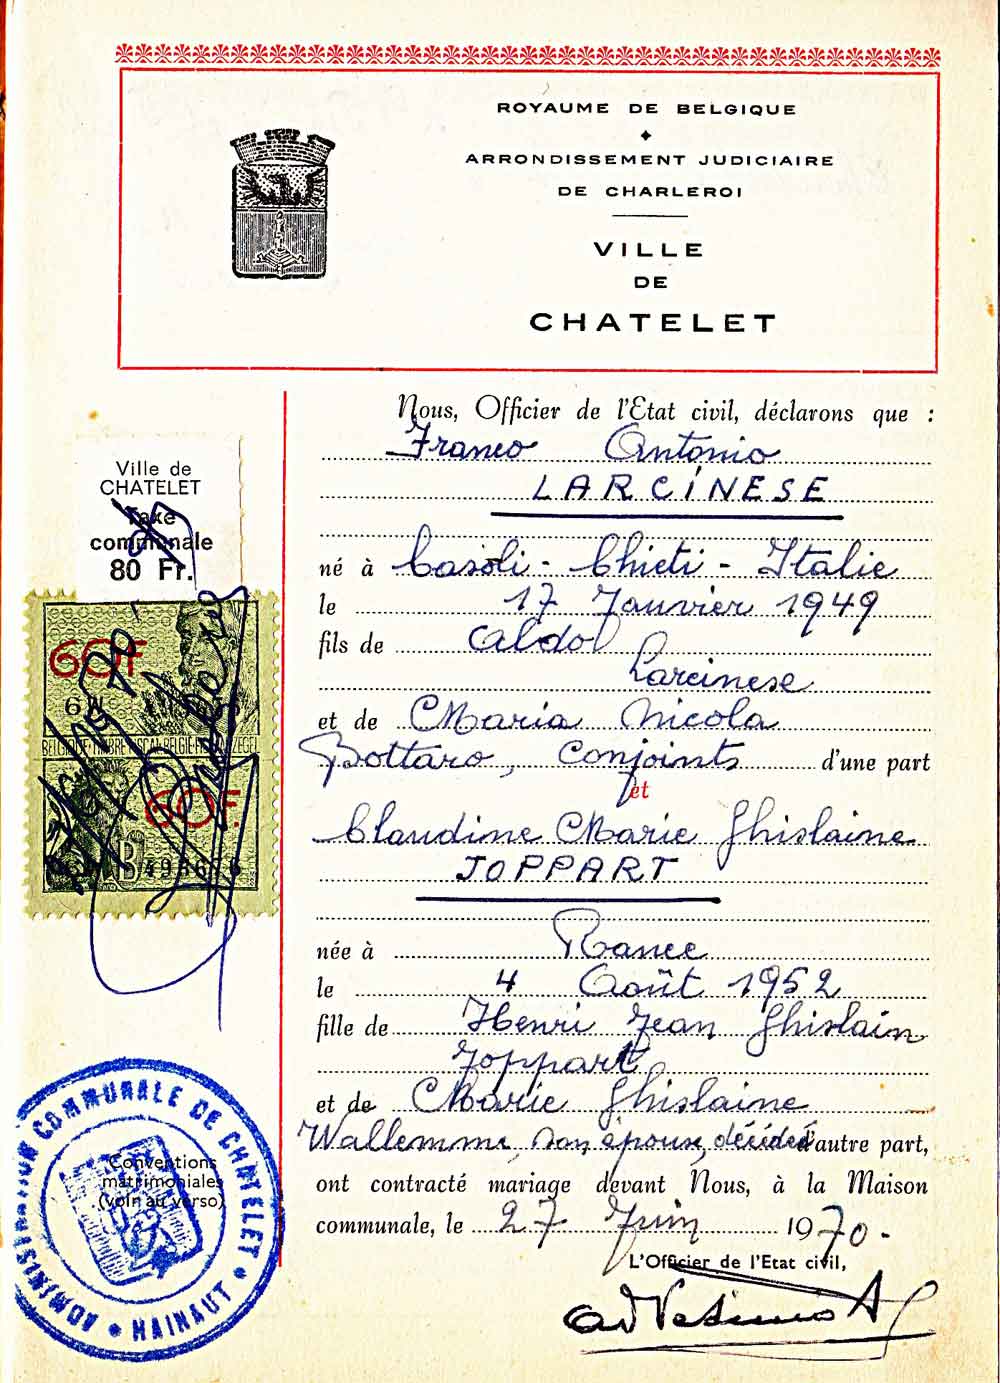 ROYAUME DE BELGIQUE
ARRONDISSEMENT JUDICIAIRE
DE CHARLEROI
VILLE
DE
CHATELET
Nous, Officier de l'Etat civil, déclarons que :
Franco Antonio
LARCINESE
né à Casoli - Chieti - Italie
le 17 Janvier 1949
fils de Aldo
Larcinese
et de Maria Nicola
Bottaro, Conjoints d'une part
et
Claudine Marie Ghislaine
JOPPART
née à Rance
le 4 Août 1952
fille de Henri Jean Ghislain
Joppart
et de Marie Ghislaine
Wallemme, son épouse, décédée d'autre part,
ont contracté mariage devant Nous, à la Maison
communale, le 27 Juin 1970.
L'Officier de l'Etat civil,
Ville de
CHATELET
Taxe
communale
80 Fr.
60F
60F
ADMINISTRATION COMMUNALE DE CHATELET
HAINAUT
Conventions
matrimoniales
(voir au verso)